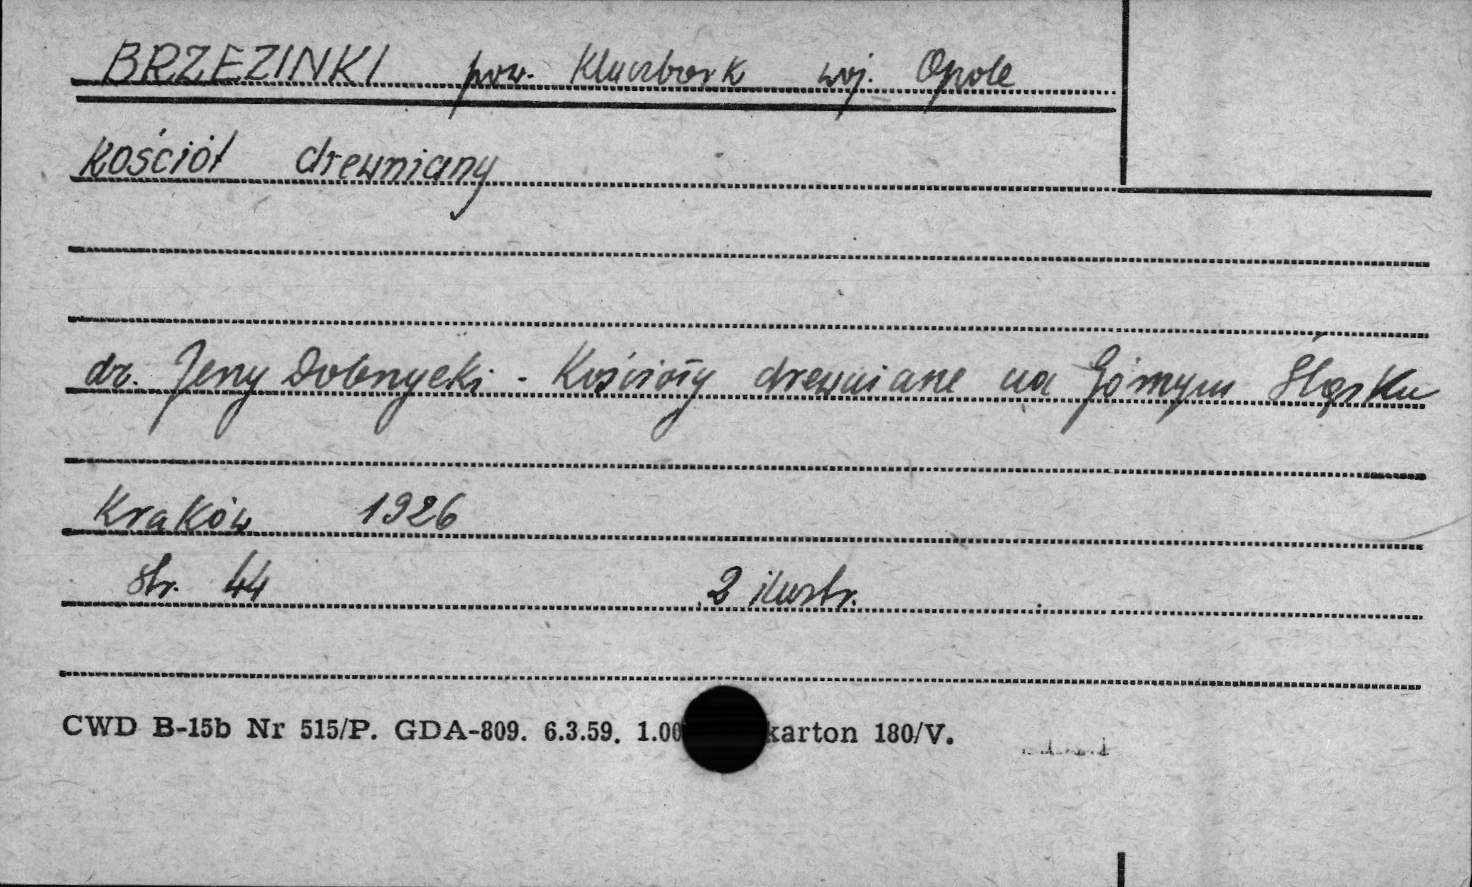 BRZEZINKI pow. Kluczbork woj. Opole
Kościół drewniany
dr. Jerzy Dobrzycki - Kościoły drewniane na Górnym Śląsku
Kraków 1926
str. 44 2 ilustr.
CWD B-15b Nr 515/P. GDA-809. 6.3.59. 1.00 karton 180/V.